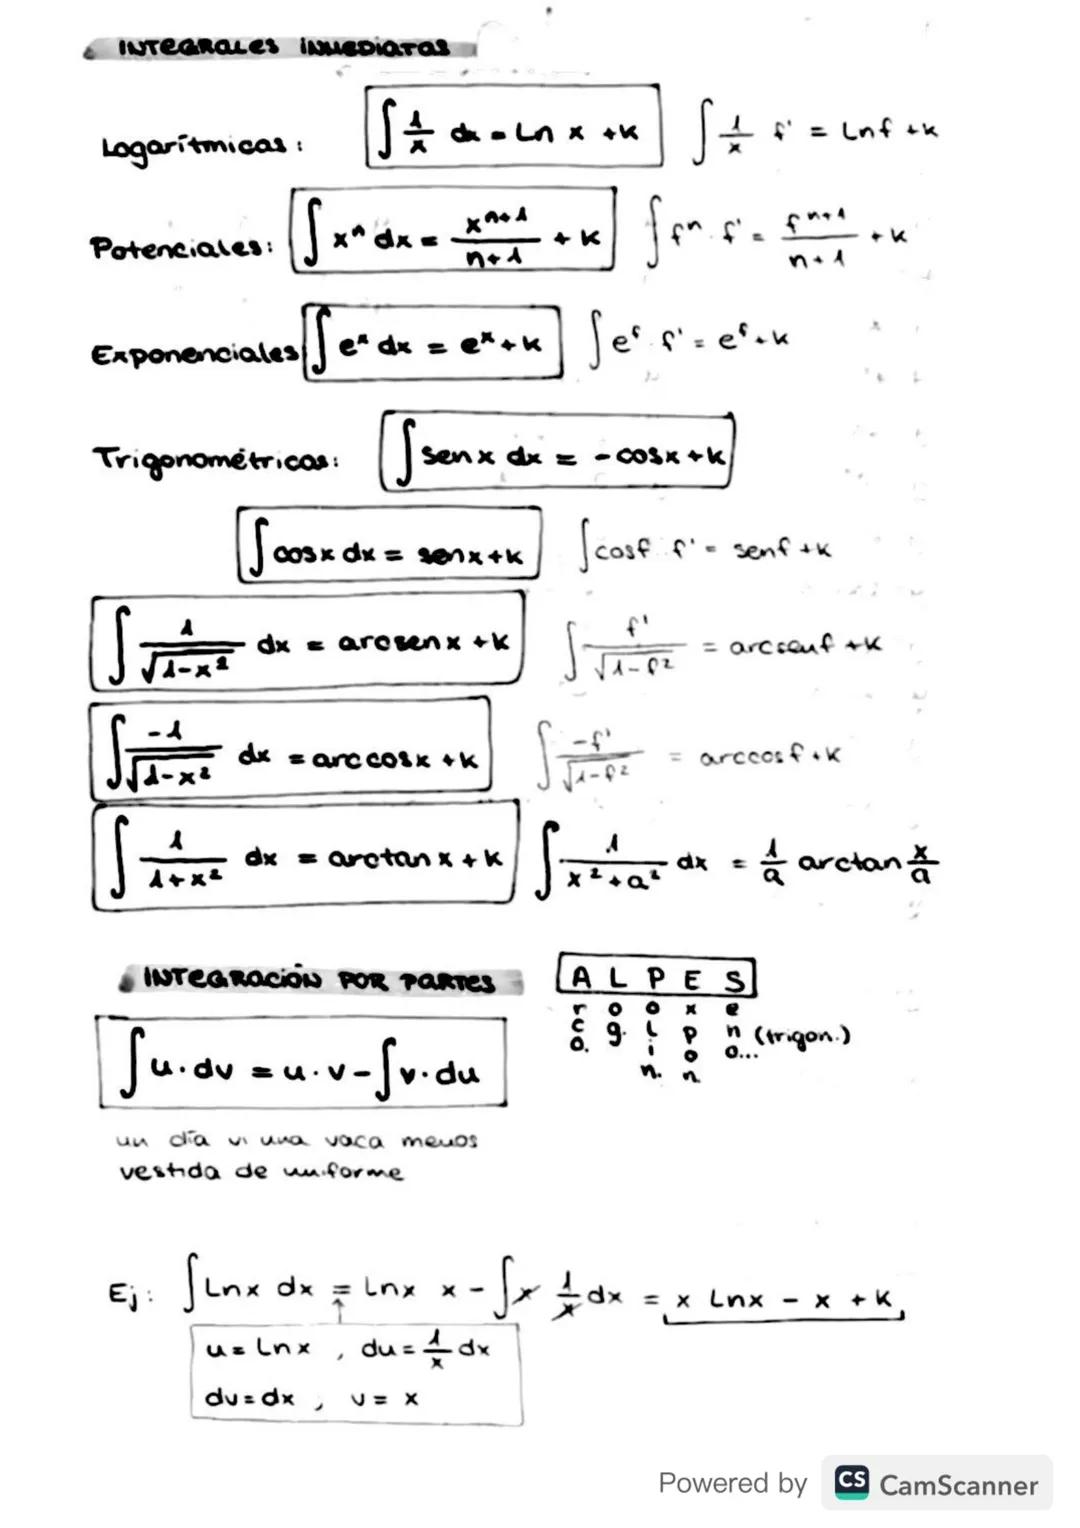 INTEGRALES INMEDIATAS
Logarítmicas: ∫ 1/x dx = Ln x + K   ∫ 1/x f' = Ln f + K
Potenciales: ∫ xⁿ dx = xⁿ⁺¹/n+1 + K   ∫ fⁿ · f' = fⁿ⁺¹/n+1 + K
Exponenciales ∫ eˣ dx = eˣ + K   ∫ eᶠ · f' = eᶠ + K
Trigonométricas: ∫ sen x dx = - cos x + K
∫ cos x dx = sen x + K   ∫ cos f · f' = sen f + K
∫ 1/√1-x² dx = arcsen x + K   ∫ f'/√1-f² = arcsen f + K
∫ -1/√1-x² dx = arc cos x + K   ∫ -f'/√1-f² = arccos f + K
∫ 1/1+x² dx = arctan x + K   ∫ 1/x²+a² dx = 1/a arctan x/a
INTEGRACIÓN POR PARTES   A L P E S
r o o x e
c g. l p n (trigon.)
o. i o o...
n. n
∫ u · dv = u · v - ∫ v · du
un día vi una vaca menos
vestida de uniforme
Ej: ∫ Ln x dx = Ln x x - ∫ x 1/x dx = x Ln x - x + K
u = Ln x , du = 1/x dx
dv = dx , v = x
Powered by CS CamScanner